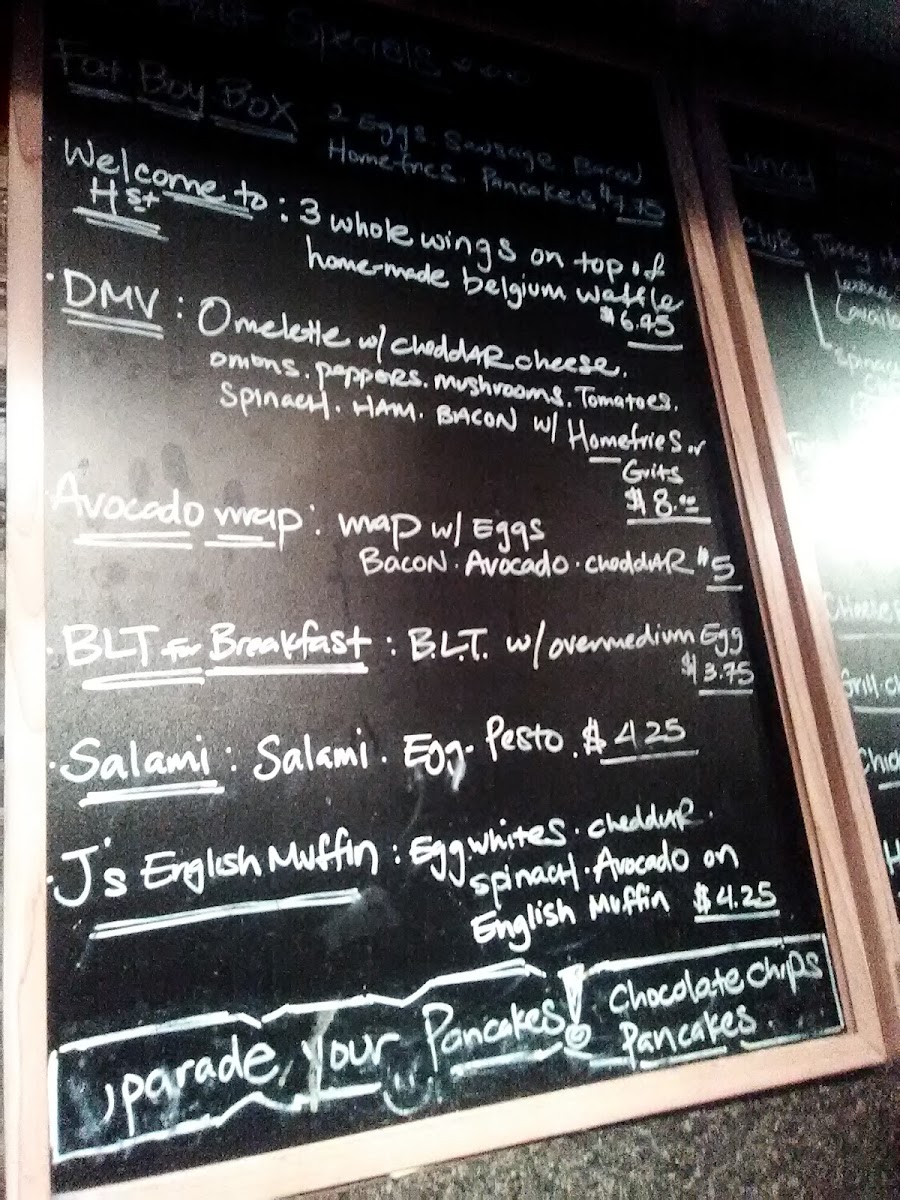 Specials
Fat Boy Box
2 Eggs. Sausage. Bacon
Homefries. Pancakes $7.75
Welcome to : 3 whole wings on top of
H st
home-made belgium waffle
$6.95
· DMV : Omelette w/ cheddar cheese.
onions. peppers. mushrooms. Tomatoes.
Spinach. HAM. BACON w/ Homefries or
Grits
$8.00
· Avocado wrap : wrap w/ Eggs
Bacon · Avocado · cheddAR $5
· BLT for Breakfast : B.L.T. w/ overmedium Egg
$3.75
· Salami : Salami · Egg · Pesto. $4.25
· J's English Muffin : Egg whites · cheddar.
spinach · Avocado on
English Muffin $4.25
your Pancakes!
Chocolate chips
Pancakes.
Lunch
Club
Turkey
Spinach
Grill